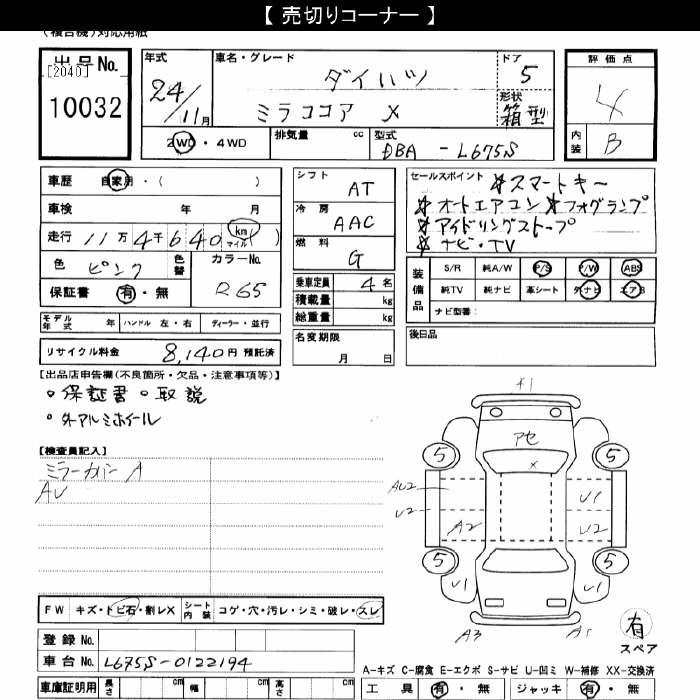 【 売切りコーナー 】
(複合機)対応用紙
出品No.
[2040]
10032
年式
24/11月
車名・グレード
ダイハツ
ミラココア X
ドア
5
形状
箱型
評価点
4
内装
B
2WD・4WD
排気量 cc
型式
DBA - L675S
車歴 自家用・( )
車検 年 月
走行 11万4千640 km マイル ( )
色 ピンク 色替
カラーNo.
R65
保証書 有・無
シフト AT
冷房 AAC
燃料 G
乗車定員 4名
積載量 kg
総重量 kg
名変期限
月 日
セールスポイント
スマートキー
オートエアコン フォグランプ
アイドリングストップ
ナビ・TV
装備品
S/R 純A/W P/S P/W ABS
純TV 純ナビ 革シート 外ナビ エアB
ナビ型番:
後日品
モデル年式 年 ハンドル 左・右 ディーラー・並行
リサイクル料金 8,140円 預託済
【出品店申告欄(不良箇所・欠品・注意事項等)】
。保証書。取説
。外アルミホイール
【検査員記入】
ミラーカバー A
AU
A1
アセ
X
5
5
AU2
U2
A2
U1
U2
5
5
U1
U1
A3
有
スペア
FW キズ・トビ石・割レX シート内装 コゲ・穴・汚レ・シミ・破レ・スレ
登録No.
車台No. L675S-0122194
車庫証明用 長さ cm 幅 cm 高さ cm
A-キズ C-腐食 E-エクボ S-サビ U-凹ミ W-補修 XX-交換済
工具 有・無 ジャッキ 有・無